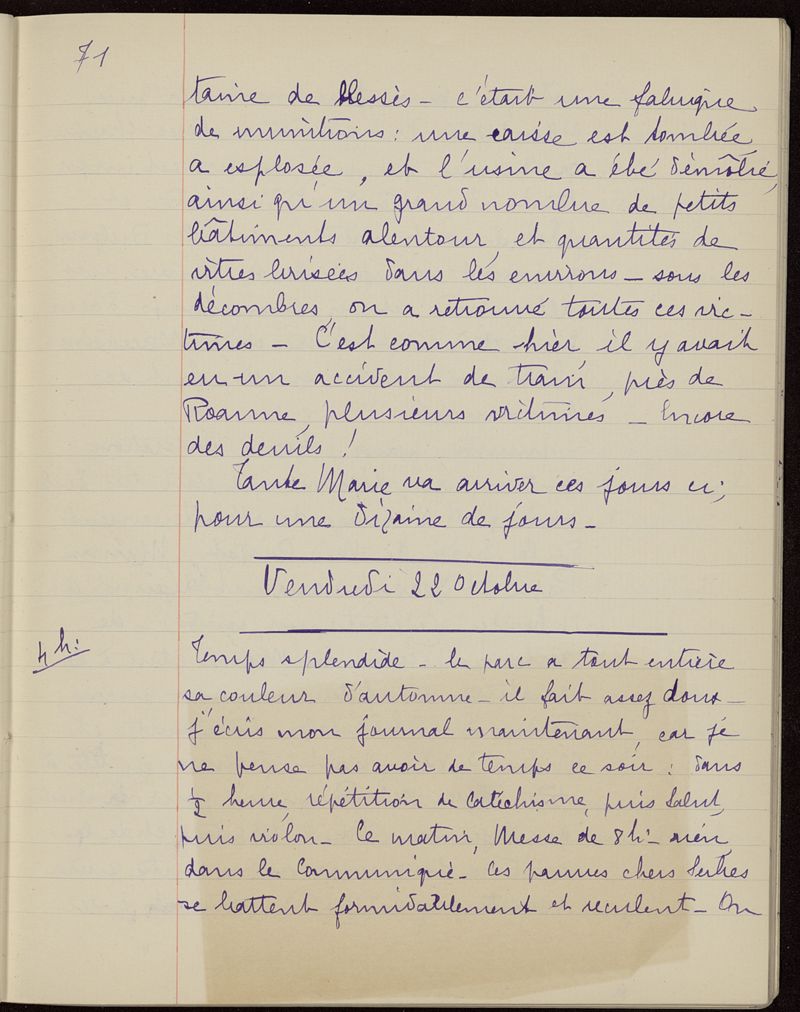 71
taine de blessés – c'était une fabrique
de munitions : une caisse est tombée,
a explosée, et l'usine a été démolie,
ainsi qu'un grand nombre de petits
bâtiments alentour, et quantités de
vitres brisées dans les environs – sous les
décombres, on a retrouvé toutes ces vic-
times – C'est comme hier il y avait
eu un accident de train, près de
Roanne, plusieurs victimes – Encore
des deuils !
Tante Marie va arriver ces jours ci ;
pour une dizaine de jours –
Vendredi 22 Octobre
4 h :
Temps splendide – le parc a tout entière
sa couleur d'automne – il fait assez doux –
j'écris mon journal maintenant, car je
ne pense pas avoir de temps ce soir : dans
½ heure, répétition de catéchisme, puis Salut,
puis violon – Ce matin, Messe de 8h – rien
dans le Communiqué – Ces pauvres chers Serbes
se battent formidablement et reculent – On